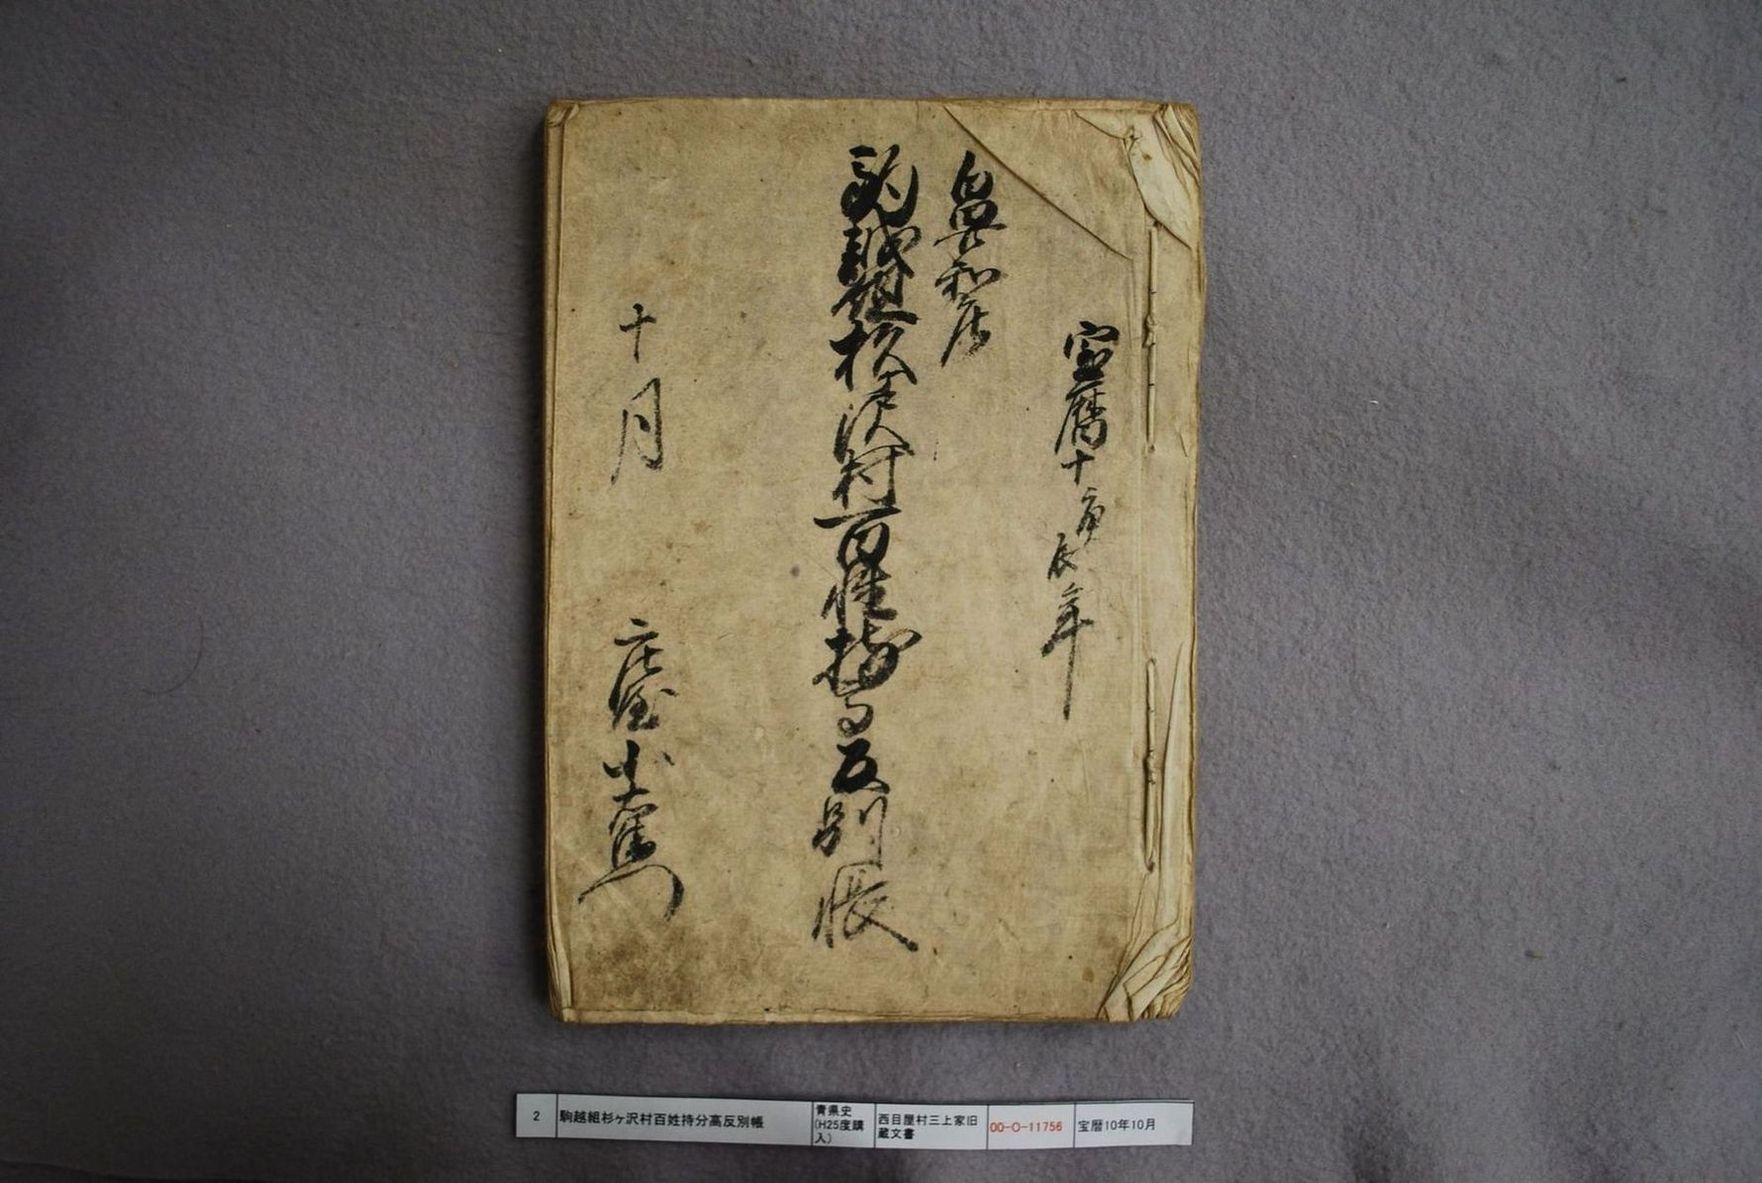 宝暦十庚辰年
鼻和庄
駒越組杉ヶ沢村百姓持分高反別帳
十月
庄屋
2
駒越組杉ヶ沢村百姓持分高反別帳
青県史
(H25度購
入)
西目屋村三上家旧
蔵文書
00-O-11756
宝暦10年10月